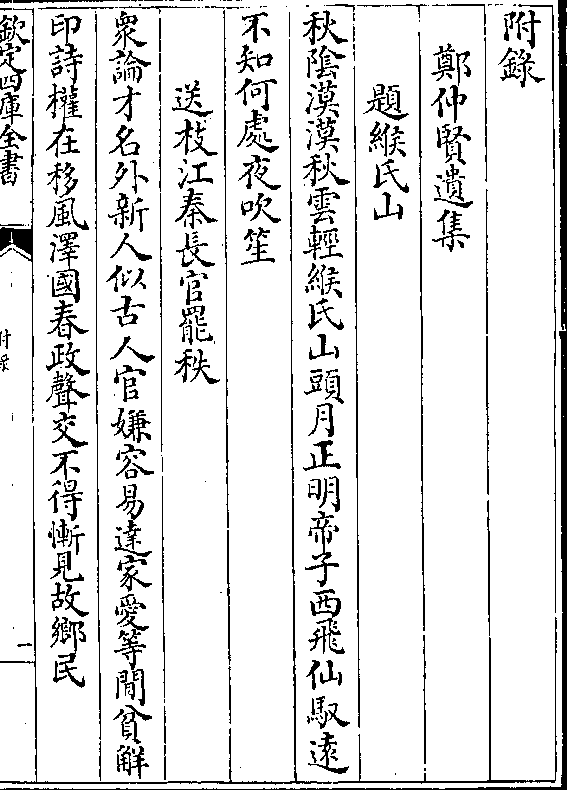 附錄
鄭仲賢遺集
題緱氏山
秋陰漠漠秋雲輕緱氏山頭月正明帝子西飛仙馭遠
不知何處夜吹笙
送枝江秦長官罷秩
衆論才名外新人似古人官嫌容易達家愛等閒貧解
印詩權在移風澤國春政聲交不得慚見故鄉民
欽定四庫全書
附錄
一